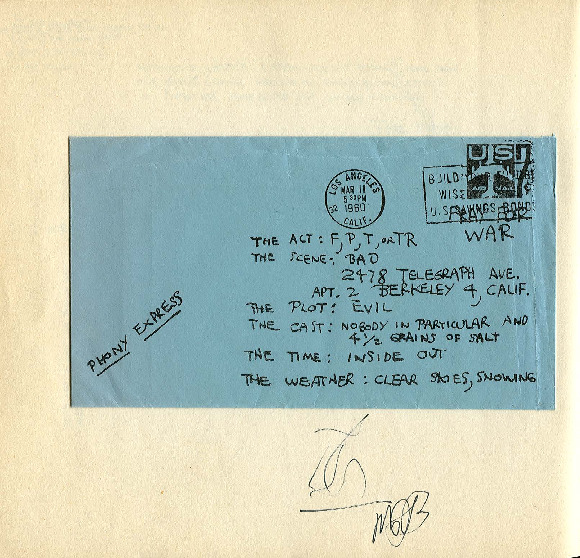 LOS ANGELES
CALIF.
MAR 11
5 PM
1960
BUILD
WISE
U.S. SAVINGS BOND
US
PRAY FOR
WAR
THE ACT: F, P, T, OR TR
THE SCENE: BAD
2478 TELEGRAPH AVE.
APT. 2 BERKELEY 4, CALIF.
THE PLOT: EVIL
THE CAST: NOBODY IN PARTICULAR AND
4 1/2 GRAINS OF SALT
THE TIME: INSIDE OUT
THE WEATHER: CLEAR SKIES, SNOWING
PHONY EXPRESS